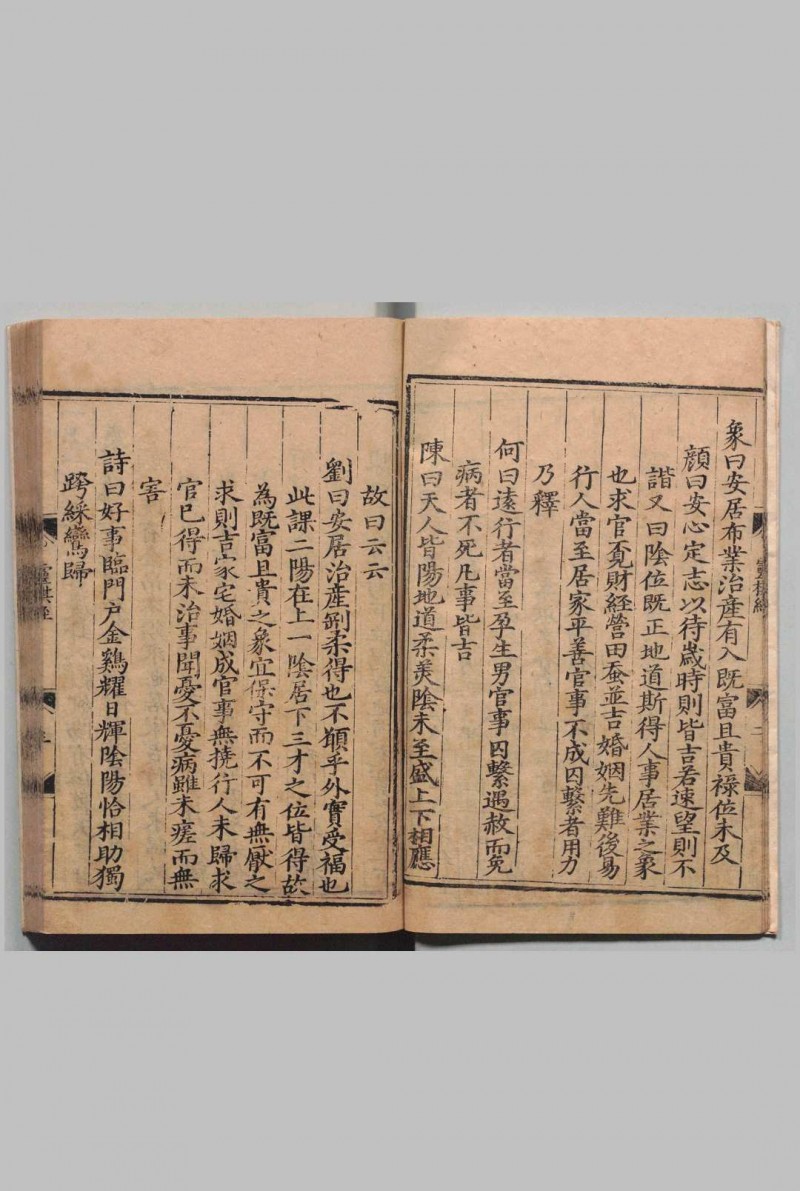 象曰安居布業治產有入既富且貴祿位未及
顔曰安心定志以待歲時則皆吉若速望則不
諧又曰陰位既正地道斯得人事居業之象
也求官覓財經營田蚕並吉婚姻先難後易
行人當至居家平善官事不成囚繫者用力
乃釋
何曰遠行者當至孕生男官事囚繫遇赦而免
病者不死凡事皆吉
陳曰天人皆陽地道柔美陰未至盛上下相應
故曰云云
劉曰安居治產剛柔得也不願乎外實受福也
此課二陽在上一陰居下三才之位皆得故
為既富且貴之象宜保守而不可有無厭之
求則吉家宅婚姻成官事無撓行人未歸求
官已得而未治事聞憂不憂病雖未瘥而無
害
詩曰好事臨門户金鷄耀日輝陰陽恰相助獨
跨綵鸞歸
靈棋經